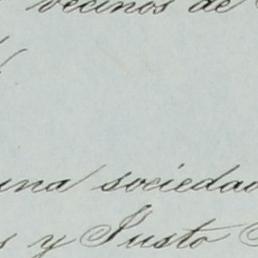 vecinos de
una sociedad
y Justo